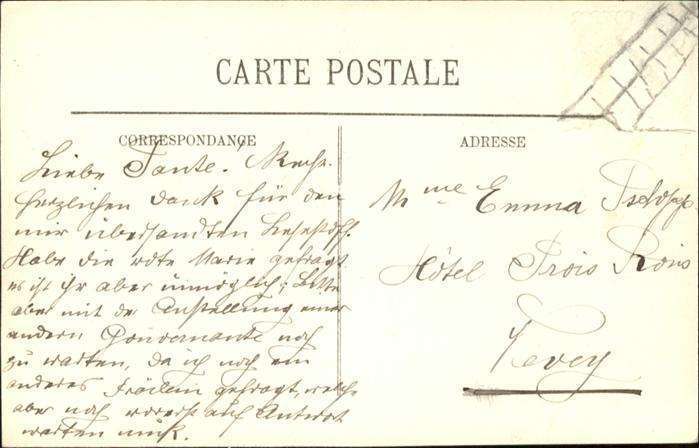 CARTE POSTALE
CORRESPONDANCE
Liebe Tante.
herzlichen Dank für den
mir übersandten Lesestoff.
Habe die rote Marie gefragt
es ist ihr aber unmöglich; Bitte
aber mit der Anstellung einer
andern Gouvernante noch
zu warten, da ich noch ein
anderes Fräulein gefragt, welche
aber noch vorerst auf Antwort
warten muß.
ADRESSE
Mme Emma
Hôtel Trois Rois
Vevey